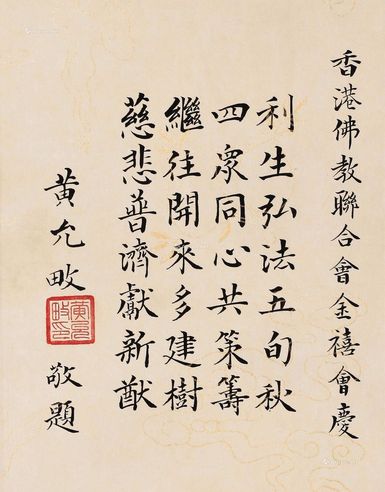 香港佛教聯合會金禧會慶
利生弘法五旬秋
四眾同心共策籌
繼往開來多建樹
慈悲普濟獻新猷
黃允畋
黃允畋印
敬題